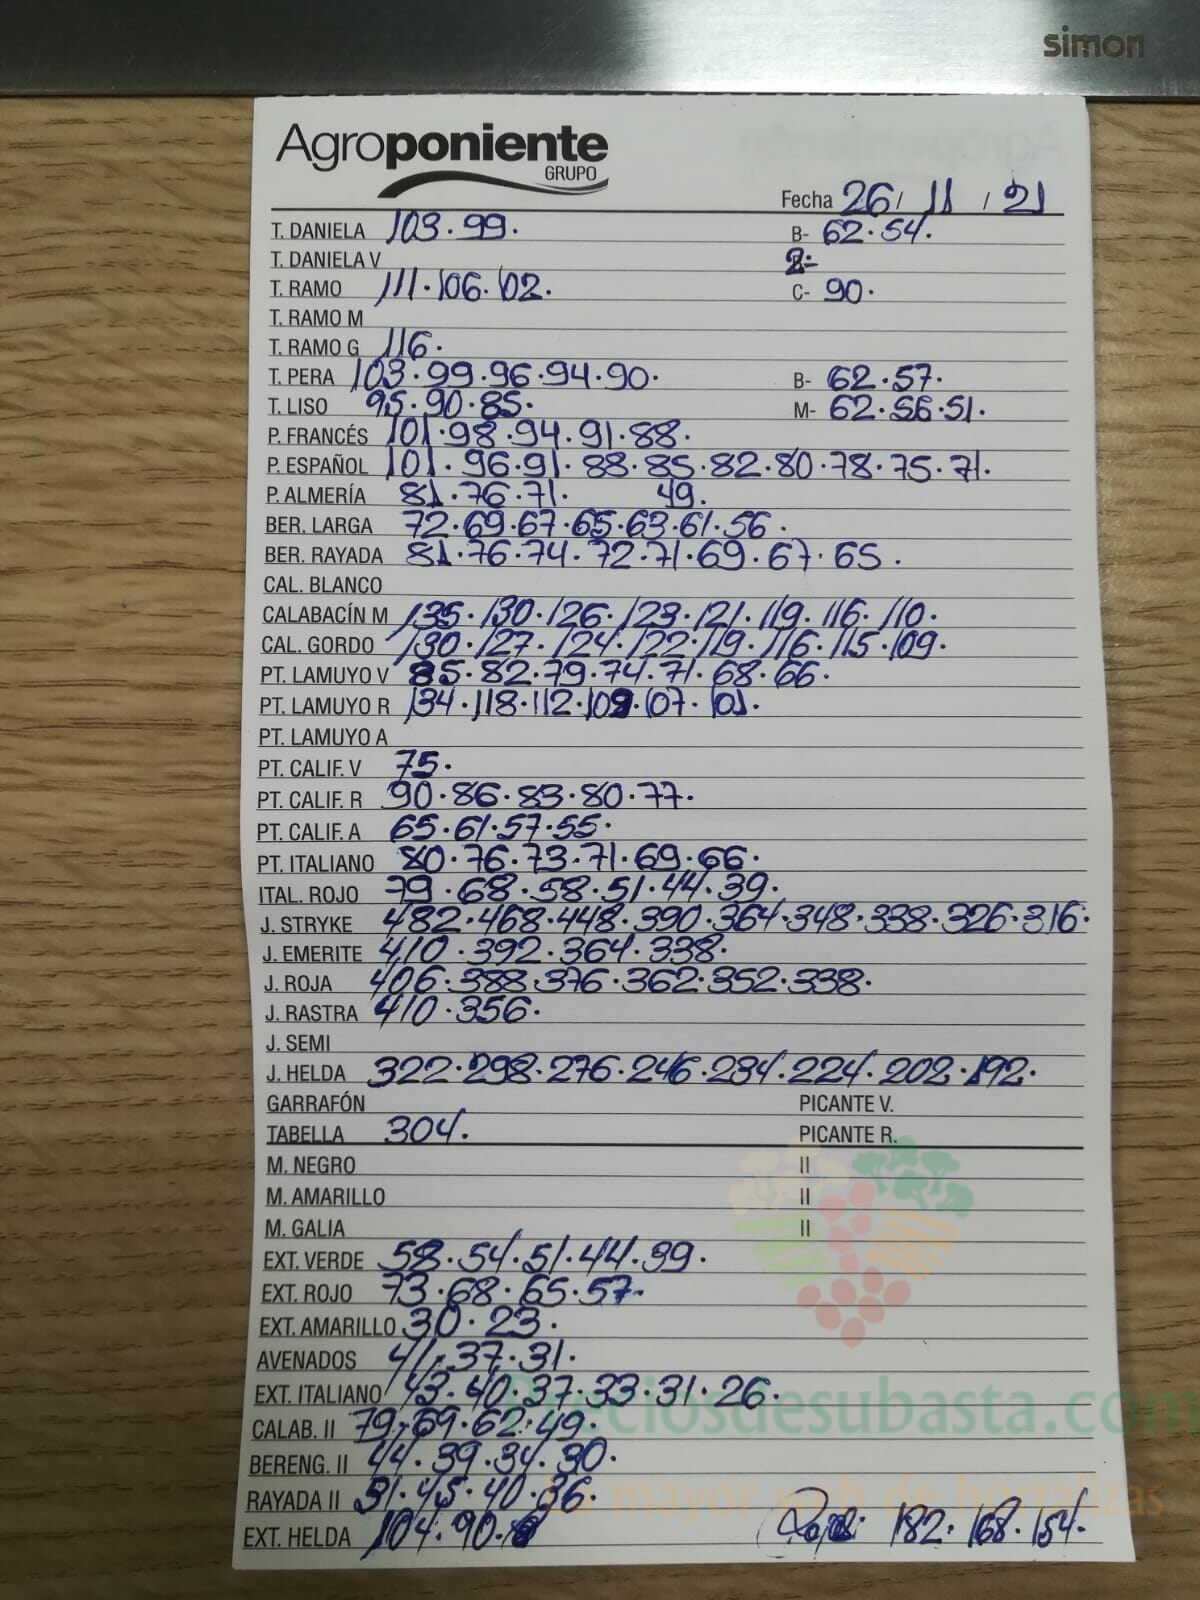 simon
Agroponiente
GRUPO
Fecha 26 / 11 / 21
T. DANIELA 103. 99. B- 62. 54.
T. DANIELA V 2-
T. RAMO 111. 106. 102. C- 90.
T. RAMO M
T. RAMO G 116.
T. PERA 103. 99. 96. 94. 90. B- 62. 57.
T. LISO 95. 90. 85. M- 62. 56. 51.
P. FRANCÉS 101. 98. 94. 91. 88.
P. ESPAÑOL 101. 96. 91. 88. 85. 82. 80. 78. 75. 71.
P. ALMERÍA 81. 76. 71. 49.
BER. LARGA 72. 69. 67. 65. 63. 61. 56.
BER. RAYADA 81. 76. 74. 72. 71. 69. 67. 65.
CAL. BLANCO
CALABACÍN M 135. 130. 126. 123. 121. 119. 116. 110.
CAL. GORDO 130. 127. 124. 122. 119. 116. 115. 109.
PT. LAMUYO V 85. 82. 79. 74. 71. 68. 66.
PT. LAMUYO R 134. 118. 112. 109. 107. 101.
PT. LAMUYO A
PT. CALIF. V 75.
PT. CALIF. R 90. 86. 83. 80. 77.
PT. CALIF. A 65. 61. 57. 55.
PT. ITALIANO 80. 76. 73. 71. 69. 66.
ITAL. ROJO 79. 68. 58. 51. 44. 39.
J. STRYKE 482. 468. 448. 390. 364. 348. 338. 326. 316.
J. EMERITE 410. 392. 364. 338.
J. ROJA 406. 388. 376. 362. 352. 338.
J. RASTRA 410. 356.
J. SEMI
J. HELDA 322. 298. 276. 246. 234. 224. 202. 192.
GARRAFÓN PICANTE V.
TABELLA 304. PICANTE R.
M. NEGRO II
M. AMARILLO II
M. GALIA II
EXT. VERDE 58. 54. 51. 44. 39.
EXT. ROJO 73. 68. 65. 57.
EXT. AMARILLO 30. 23.
AVENADOS 41. 37. 31.
EXT. ITALIANO 43. 40. 37. 33. 31. 26.
Preciosdesubasta.com
CALAB. II 79. 69. 62. 49.
BERENG. II 44. 39. 34. 30.
RAYADA II 51. 45. 40. 36.
La mayor web de hortalizas
EXT. HELDA 104. 90. 182. 168. 154.